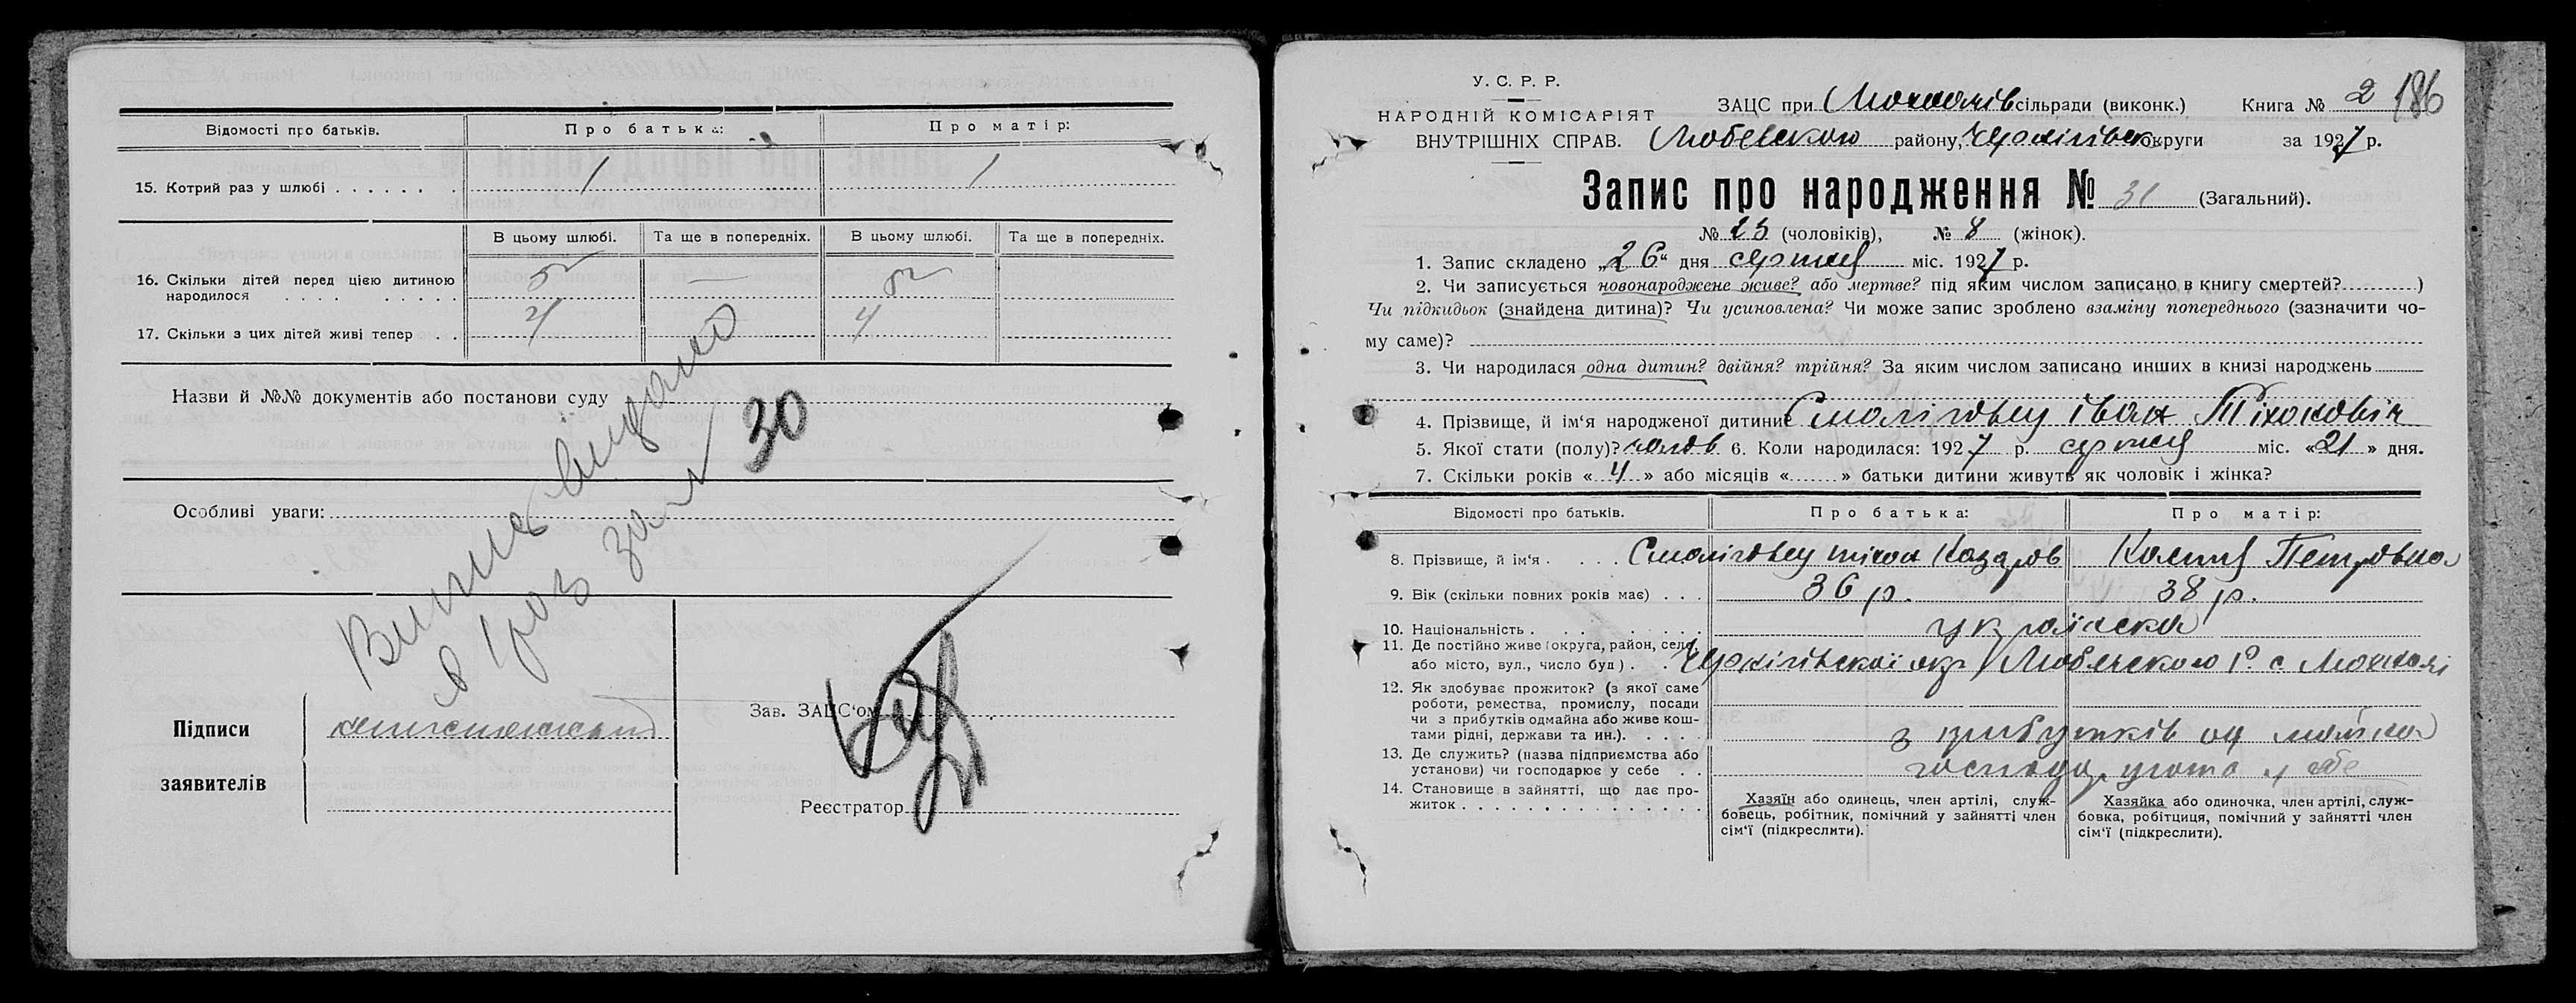 Відомості про батьків.
Про батька:
Про матір:
15. Котрий раз у шлюбі
1
1
В цьому шлюбі.
Та ще в попередніх.
В цьому шлюбі.
Та ще в попередніх.
16. Скільки дітей перед цією дитиною
народилося
5
—
5
17. Скільки з цих дітей живі тепер
4
4
Назви й №№ документів або постанови суду
30
Особливі уваги:
Виписа видана
Підписи
заявителів
Зав. ЗАЦС'ом
Реєстратор
У. С. Р. Р.
НАРОДНІЙ КОМІСАРІЯТ
ВНУТРІШНІХ СПРАВ.
ЗАЦС при сільради (виконк.)
Книга № 2 186
району, округи
за 1927 р.
Запис про народження № 31 (Загальний).
№ 23 (чоловіків), № 8 (жінок).
1. Запис складено „26“ дня серпня міс. 1927 р.
2. Чи записується новонароджене живе? або мертве? під яким числом записано в книгу смертей? )
Чи підкидьок (знайдена дитина)? Чи усиновлена? Чи може запис зроблено взаміну попереднього (зазначити чо-
му саме)?
3. Чи народилася одна дитин? двійня? трійня? За яким числом записано инших в книзі народжень
4. Прізвище, й ім'я народженої дитини Смоліговец Іван Тіхонович
5. Якої стати (полу)? чолов 6. Коли народилася: 1927 р. серпня міс. «21» дня.
7. Скільки років «4» або місяців « » батьки дитини живуть як чоловік і жінка?
Відомості про батьків.
Про батька:
Про матір:
8. Прізвище, й ім'я
Смоліговец Тіхон Назаров
Петровна
9. Вік (скільки повних років має)
36 р.
38 р.
10. Національність
українска
11. Де постійно живе (округа, район, село,
або місто, вул., число буд)
Чернігівскої окр с
12. Як здобуває прожиток? (з якої саме
роботи, ремества, промислу, посади
чи з прибутків одмайна або живе кош-
тами рідні, держави та ин.).
з прибутків од майна
13. Де служить? (назва підприємства або
установи) чи господарює у себе
у себе
14. Становище в зайнятті, що дає про-
житок
Хазяїн або одинець, член артілі, служ-
бовець, робітник, помічний у зайнятті член
сім'ї (підкреслити).
Хазяйка або одиночка, член артілі, служ-
бовка, робітциця, помічний у зайнятті член
сім'ї (підкреслити).